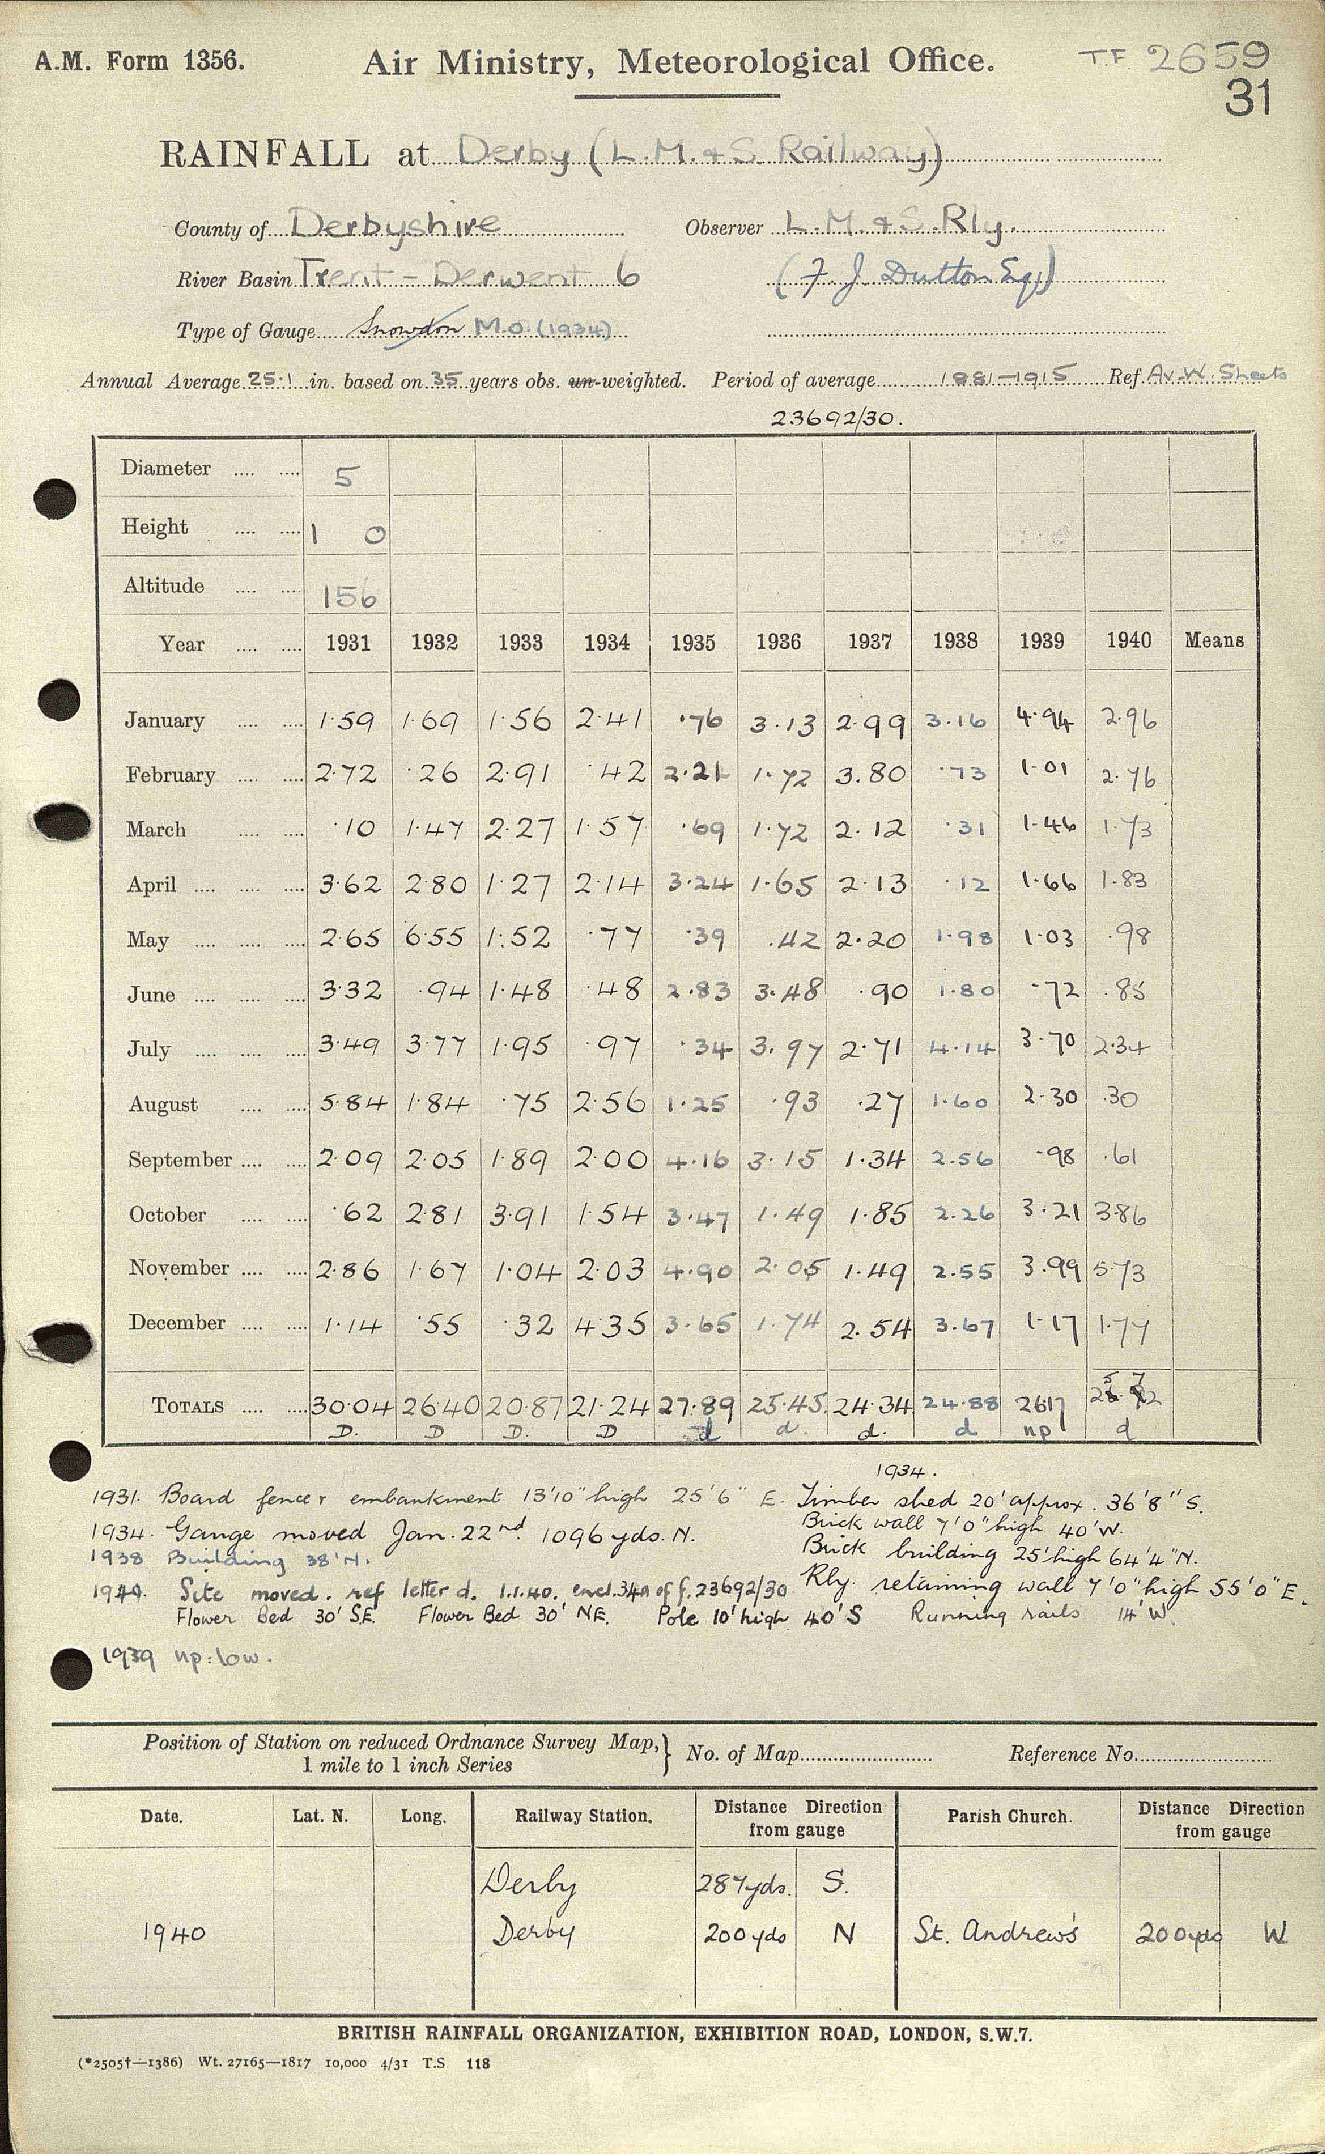 A.M. Form 1356. Air Ministry, Meteorological Office. T.F. 2659
31
RAINFALL at Derby (L.M. & S. Railway)
County of Derbyshire Observer L.M. & S. Rly.
River Basin Trent - Derwent 6 (F. J. Dutton Esq.)
Type of Gauge Snowdon M.O. (1934)
Annual Average 25.1 in. based on 35 years obs. un-weighted. Period of average 1881-1915 Ref. Av. W. Sheets
23692/30.
Diameter .... .... 5
Height .... .... 1 0
Altitude .... .... 156
Year .... .... 1931 1932 1933 1934 1935 1936 1937 1938 1939 1940 Means
January .... .... 1.59 1.69 1.56 2.41 .76 3.13 2.99 3.16 4.94 2.96
February .... .... 2.72 .26 2.91 .42 2.21 1.72 3.80 .73 1.01 2.76
March .... .... .10 1.47 2.27 1.57 .69 1.72 2.12 .31 1.46 1.73
April .... .... .... 3.62 2.80 1.27 2.14 3.24 1.65 2.13 .12 1.66 1.83
May .... .... .... 2.65 6.55 1.52 .77 .39 .42 2.20 1.98 1.03 .98
June .... .... .... 3.32 .94 1.48 .48 2.83 3.48 .90 1.80 .72 .85
July .... .... .... 3.49 3.77 1.95 .97 .34 3.97 2.71 4.14 3.70 2.34
August .... .... 5.84 1.84 .75 2.56 1.25 .93 .27 1.60 2.30 .30
September .... .... 2.09 2.05 1.89 2.00 4.16 3.15 1.34 2.56 .98 .61
October .... .... .62 2.81 3.91 1.54 3.47 1.49 1.85 2.26 3.21 3.86
November .... .... 2.86 1.67 1.04 2.03 4.90 2.05 1.49 2.55 3.99 5.73
December .... .... 1.14 .55 .32 4.35 3.65 1.74 2.54 3.67 1.17 1.77
TOTALS .... .... 30.04 26.40 20.87 21.24 27.89 25.45 24.34 24.88 26.17 25.72
D. D D. D d d. d. d np d
1934.
1931. Board fence & embankment 13'10" high 25'6" E. Timber shed 20' approx. 36'8" S.
Brick wall 7'0" high 40' W.
1934. Gauge moved Jan. 22nd 1096 yds. N.
Brick building 25' high 64'4" N.
1938 Building 38' N.
1940. Site moved. ref letter d. 1.1.40. encl. 34a of f. 23692/30 Rly. retaining wall 7'0" high 55'0" E.
Flower Bed 30' SE. Flower Bed 30' NE. Pole 10' high 40' S Running rails 14' W.
1939 np: low.
Position of Station on reduced Ordnance Survey Map, } No. of Map Reference No.
1 mile to 1 inch Series
Date. Lat. N. Long. Railway Station. Distance Direction from gauge Parish Church. Distance Direction from gauge
Derby 287 yds. S.
1940 Derby 200 yds N St. Andrew's 200 yds W
BRITISH RAINFALL ORGANIZATION, EXHIBITION ROAD, LONDON, S.W.7.
(*2505†—1386) Wt. 27165—1817 10,000 4/31 T.S 118